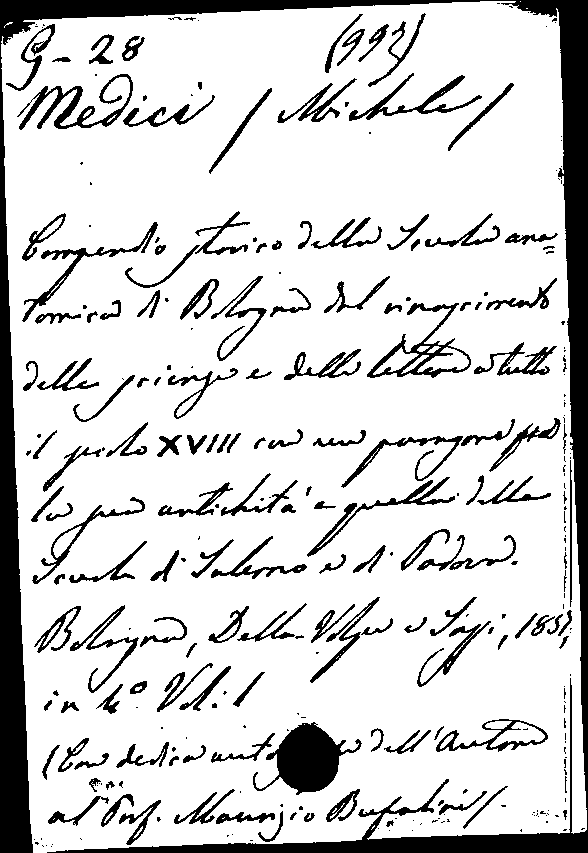 G-28 (993)
Medici / Michele /
Compendio storico della Scuola ana=
tomica di Bologna dal rinascimento
delle scienze e delle lettere a tutto
il secolo XVIII con un paragone fra
la sua antichità e quella delle
Scuole di Salerno e di Padova.
Bologna, Della Volpe e Sassi, 1857,
in 4° Vol: 1
(Con dedica dell'Autore
al Prof. Maurizio Bufalini).